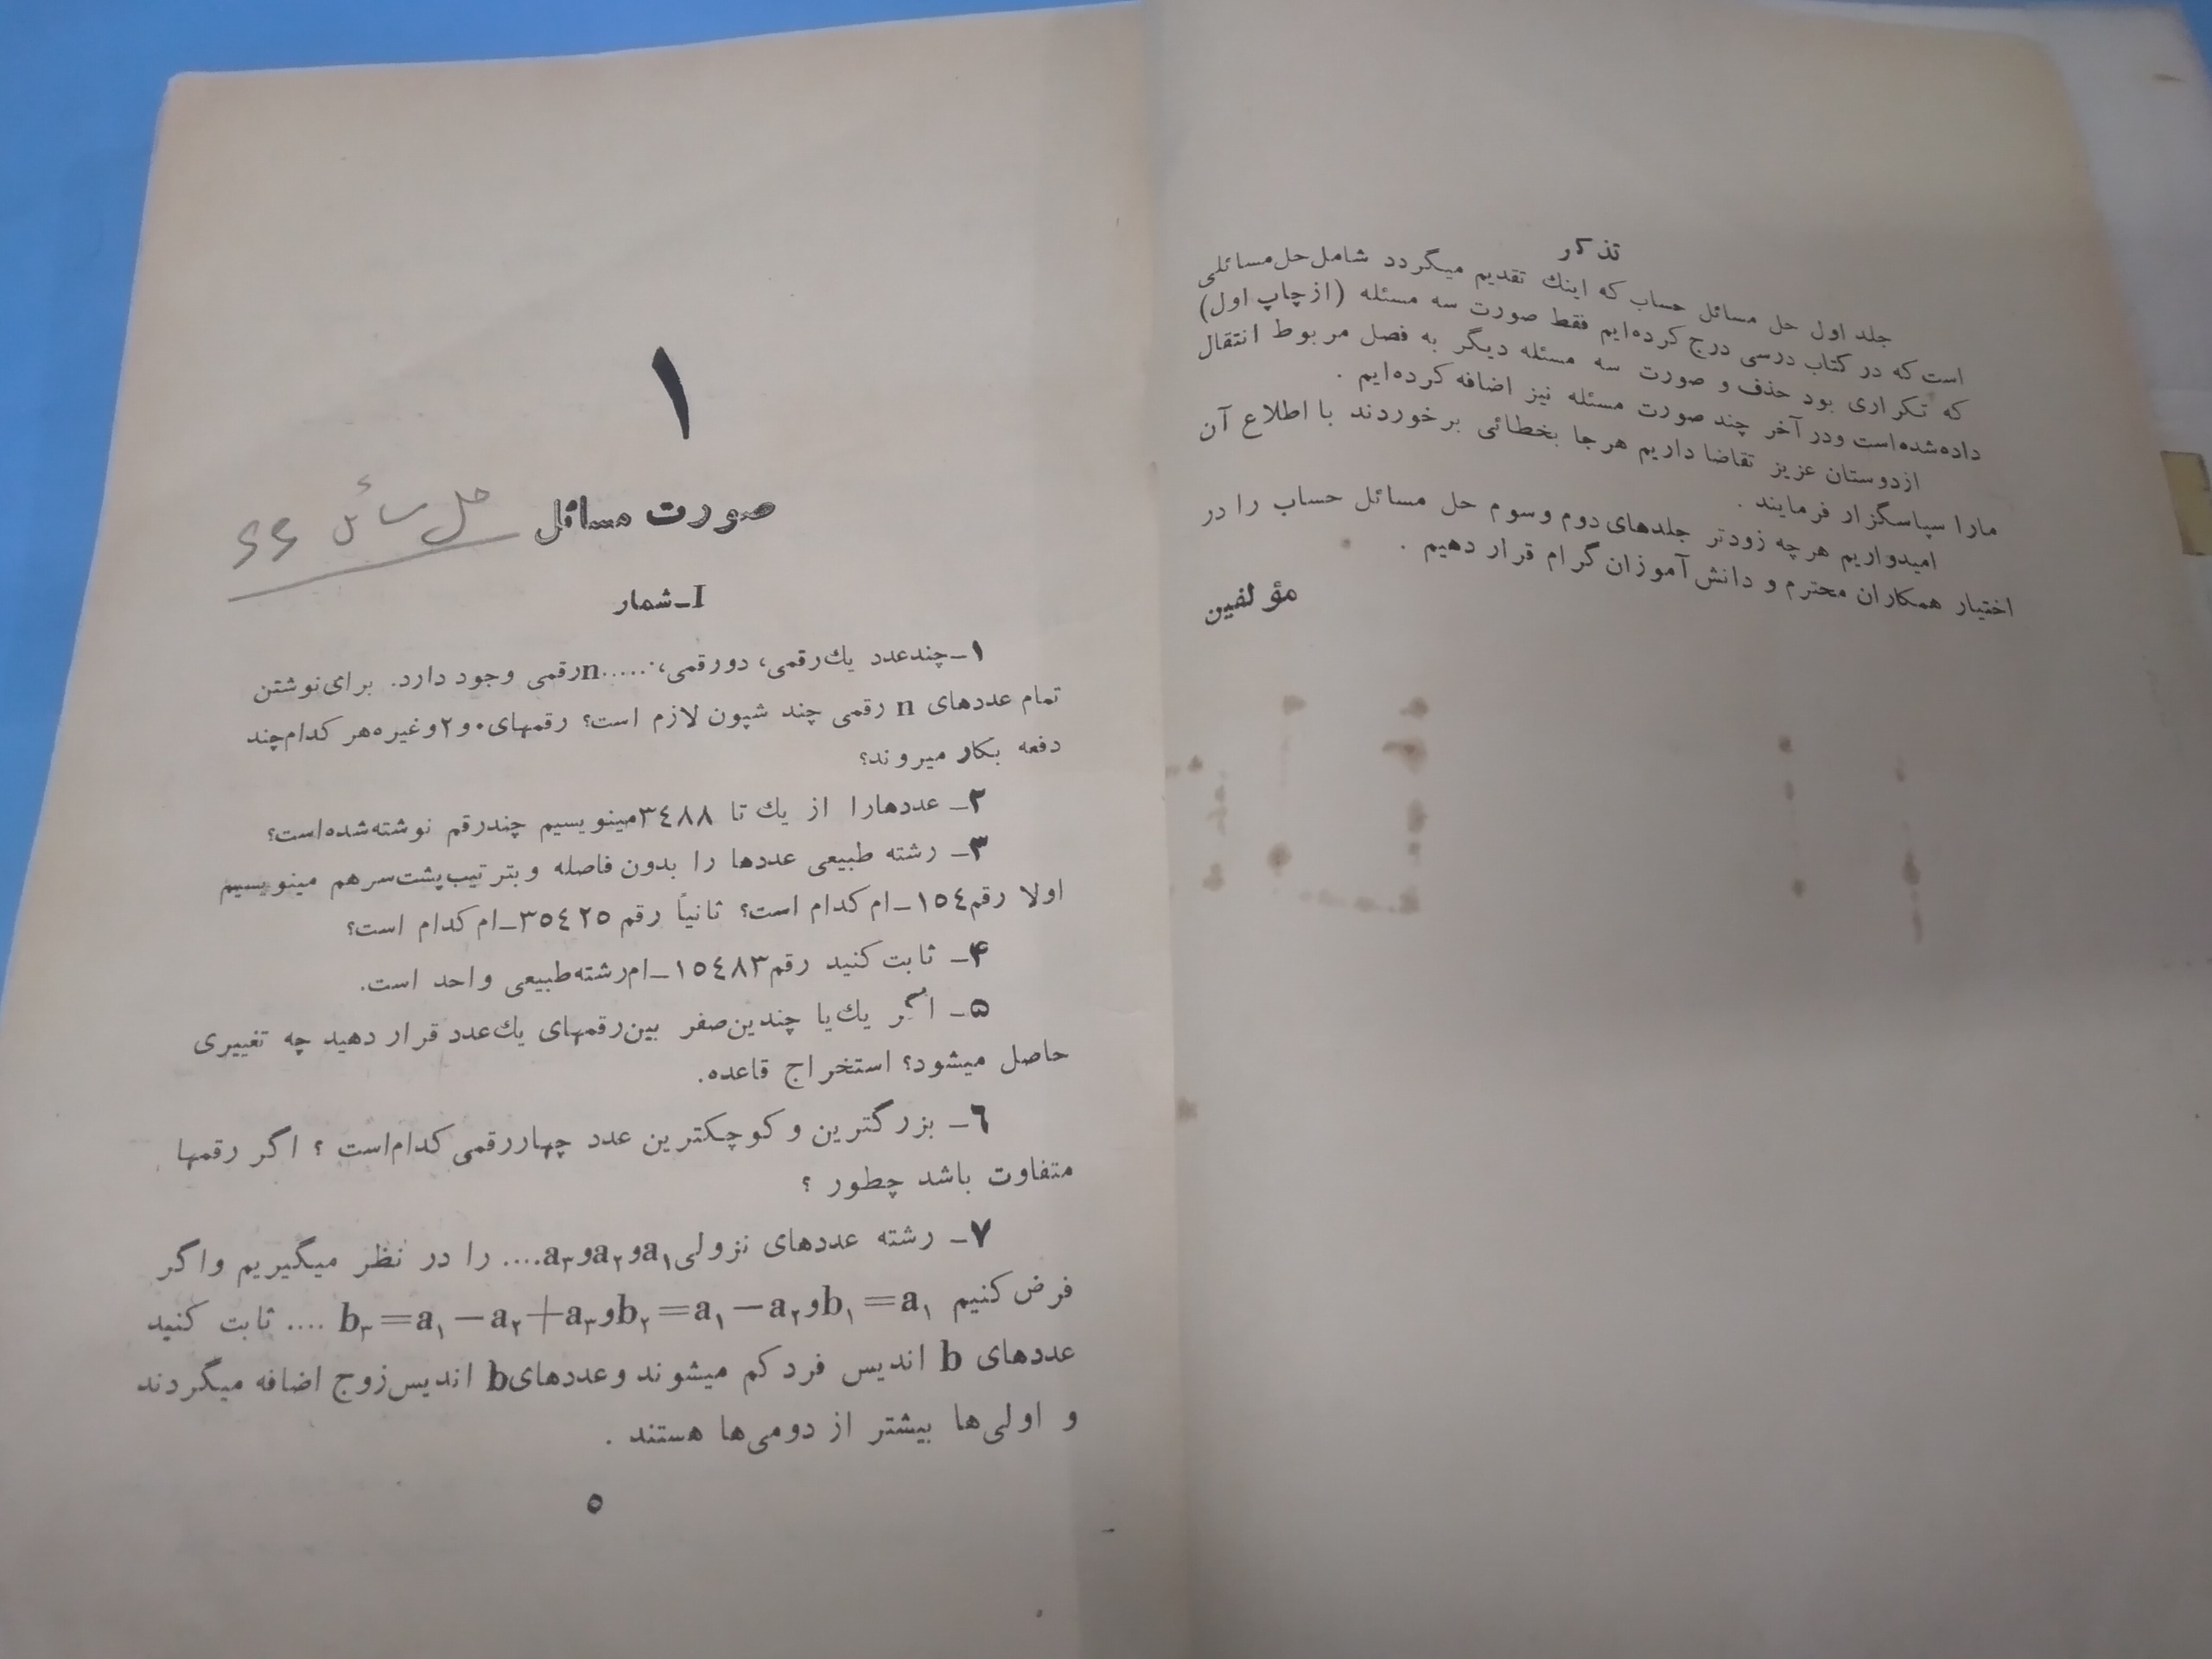 تذکر
جلد اول حل مسائل حساب که اینك تقدیم میگردد شامل حل مسائلی
است که در کتاب درسی درج کرده‌ایم فقط صورت سه مسئله (از چاپ اول)
که تکراری بود حذف و صورت سه مسئله دیگر به فصل مربوط انتقال
داده شده است و در آخر چند صورت مسئله نیز اضافه کرده‌ایم .
از دوستان عزیز تقاضا داریم هر جا بخطائی برخوردند با اطلاع آن
مارا سپاسگزار فرمایند .
امیدواریم هر چه زودتر جلدهای دوم و سوم حل مسائل حساب را در
اختیار همکاران محترم و دانش آموزان گرام قرار دهیم .
مؤلفین
۱
صورت مسائل حل مسائل
I_شمار
۱_چند عدد یك رقمی، دو رقمی،.....n رقمی وجود دارد. برای نوشتن
تمام عددهای n رقمی چند شپون لازم است؟ رقمهای ۰ و ۲ و غیره هر کدام چند
دفعه بکار میروند؟
۲_ عددها را از یك تا ۳٤۸۸ مینویسیم چند رقم نوشته شده است؟
۳_ رشته طبیعی عددها را بدون فاصله و بترتیب پشت سر هم مینویسیم
اولا رقم ۱٥٤_ام کدام است؟ ثانیاً رقم ۳٥٤۲٥_ام کدام است؟
۴_ ثابت کنید رقم ۱٥٤۸۳_ام رشته طبیعی واحد است.
۵_ اگر یك یا چندین صفر بین رقمهای یك عدد قرار دهید چه تغییری
حاصل میشود؟ استخراج قاعده.
٦_ بزرگترین و کوچکترین عدد چهار رقمی کدام است ؟ اگر رقمها
متفاوت باشد چطور ؟
۷_ رشته عددهای نزولی a₁ و a₂ و a₃.... را در نظر میگیریم و اگر
فرض کنیم b₁=a₁ و b₂=a₁−a₂ و b₃=a₁−a₂+a₃ .... ثابت کنید
عددهای b اندیس فرد کم میشوند و عددهای b اندیس زوج اضافه میگردند
و اولی‌ها بیشتر از دومی‌ها هستند .
٥